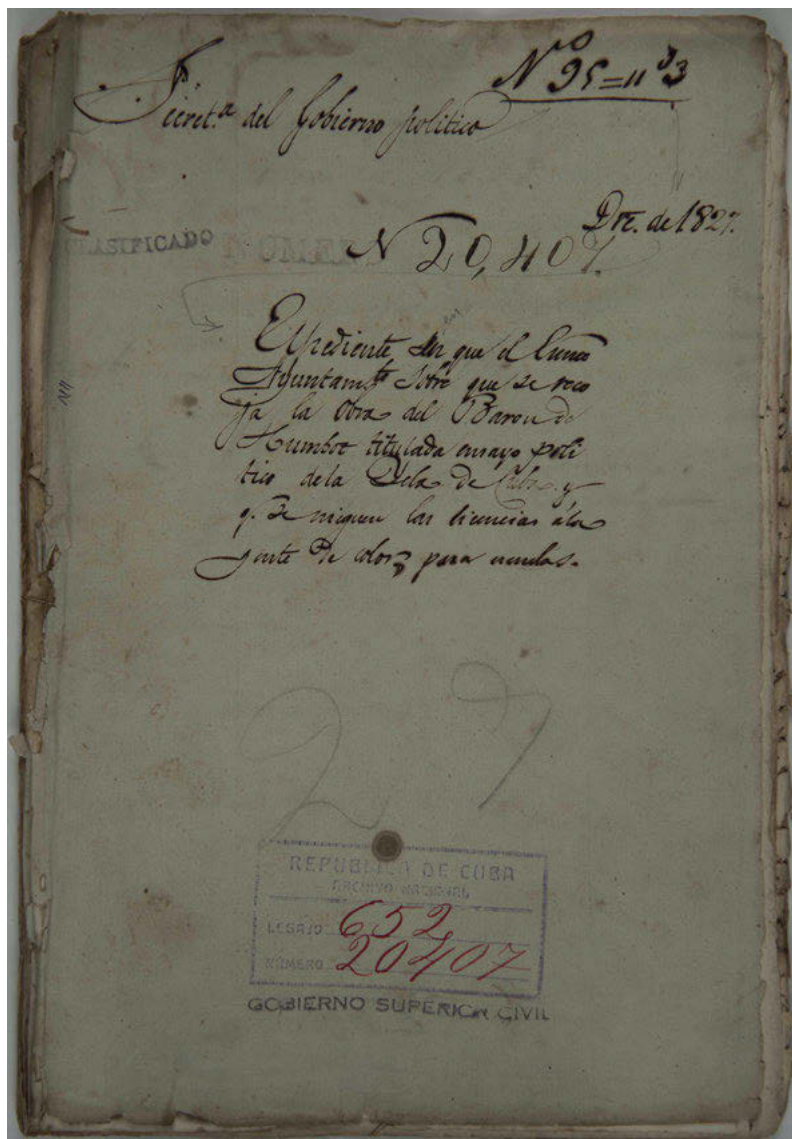 Nº 95=11 33
Secret.ª del Gobierno politico
Dre. de 1827.
CLASIFICADO NUMERO
N 20,407.
Expediente en que el
Ayuntam.to sobre que se reco
ja la Obra del Baron de
Humbot titulada ensayo poli
tico dela Isla de Cuba y
q. se nieguen las licencias ála
gente de color para
27
REPUBLICA DE CUBA
ARCHIVO NACIONAL
LEGAJO 652
NUMERO 20407
GOBIERNO SUPERIOR CIVIL